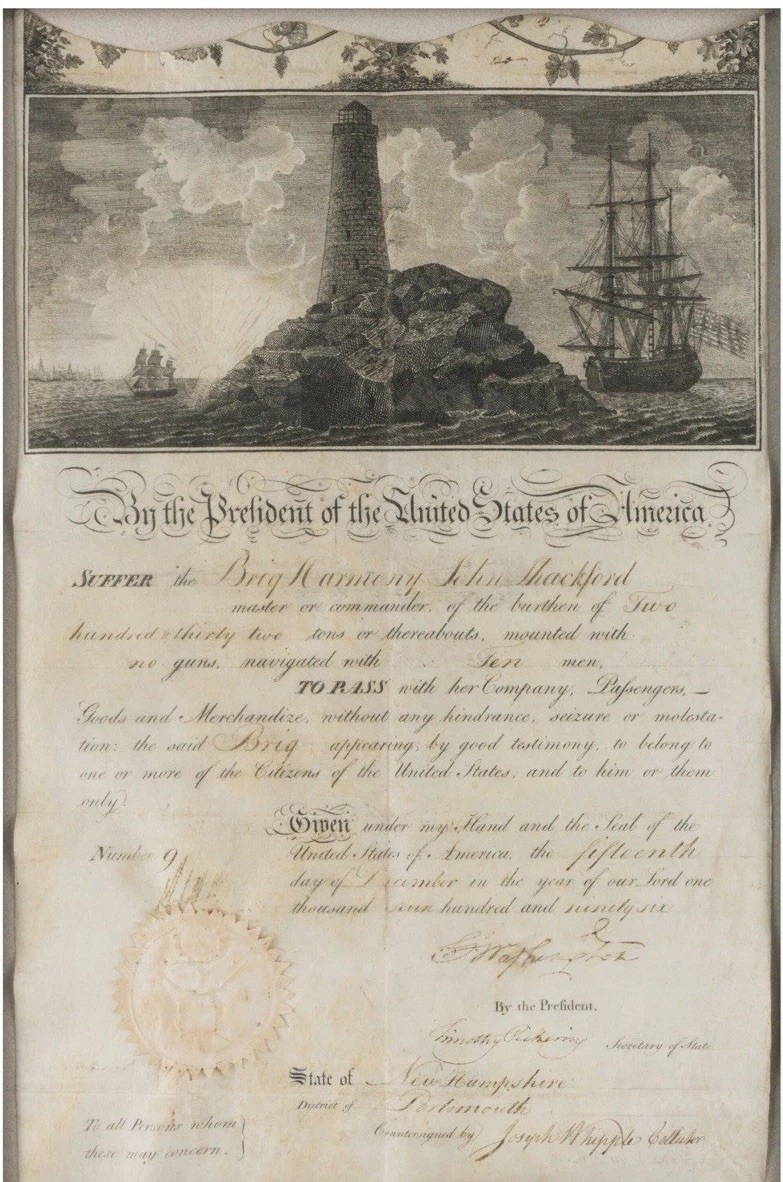 By the President of the United States of America
SUFFER the Brig Harmony John Shackford
master or commander, of the burthen of Two
hundred & thirty two tons or thereabouts, mounted with
no guns, navigated with Ten men,
TO PASS with her Company, Passengers, —
Goods and Merchandize, without any hindrance, seizure or molesta-
tion: the said Brig appearing, by good testimony, to belong to
one or more of the Citizens of the United States, and to him or them
only.
Given under my Hand and the Seal of the
Number 9
United States of America, the fifteenth
day of December in the year of our Lord one
thousand seven hundred and ninety six
G Washington
By the President,
Timothy Pickering Secretary of State
State of New Hampshire
District of Portsmouth
To all Persons whom
these may concern.
Countersigned by Joseph Whipple Collector